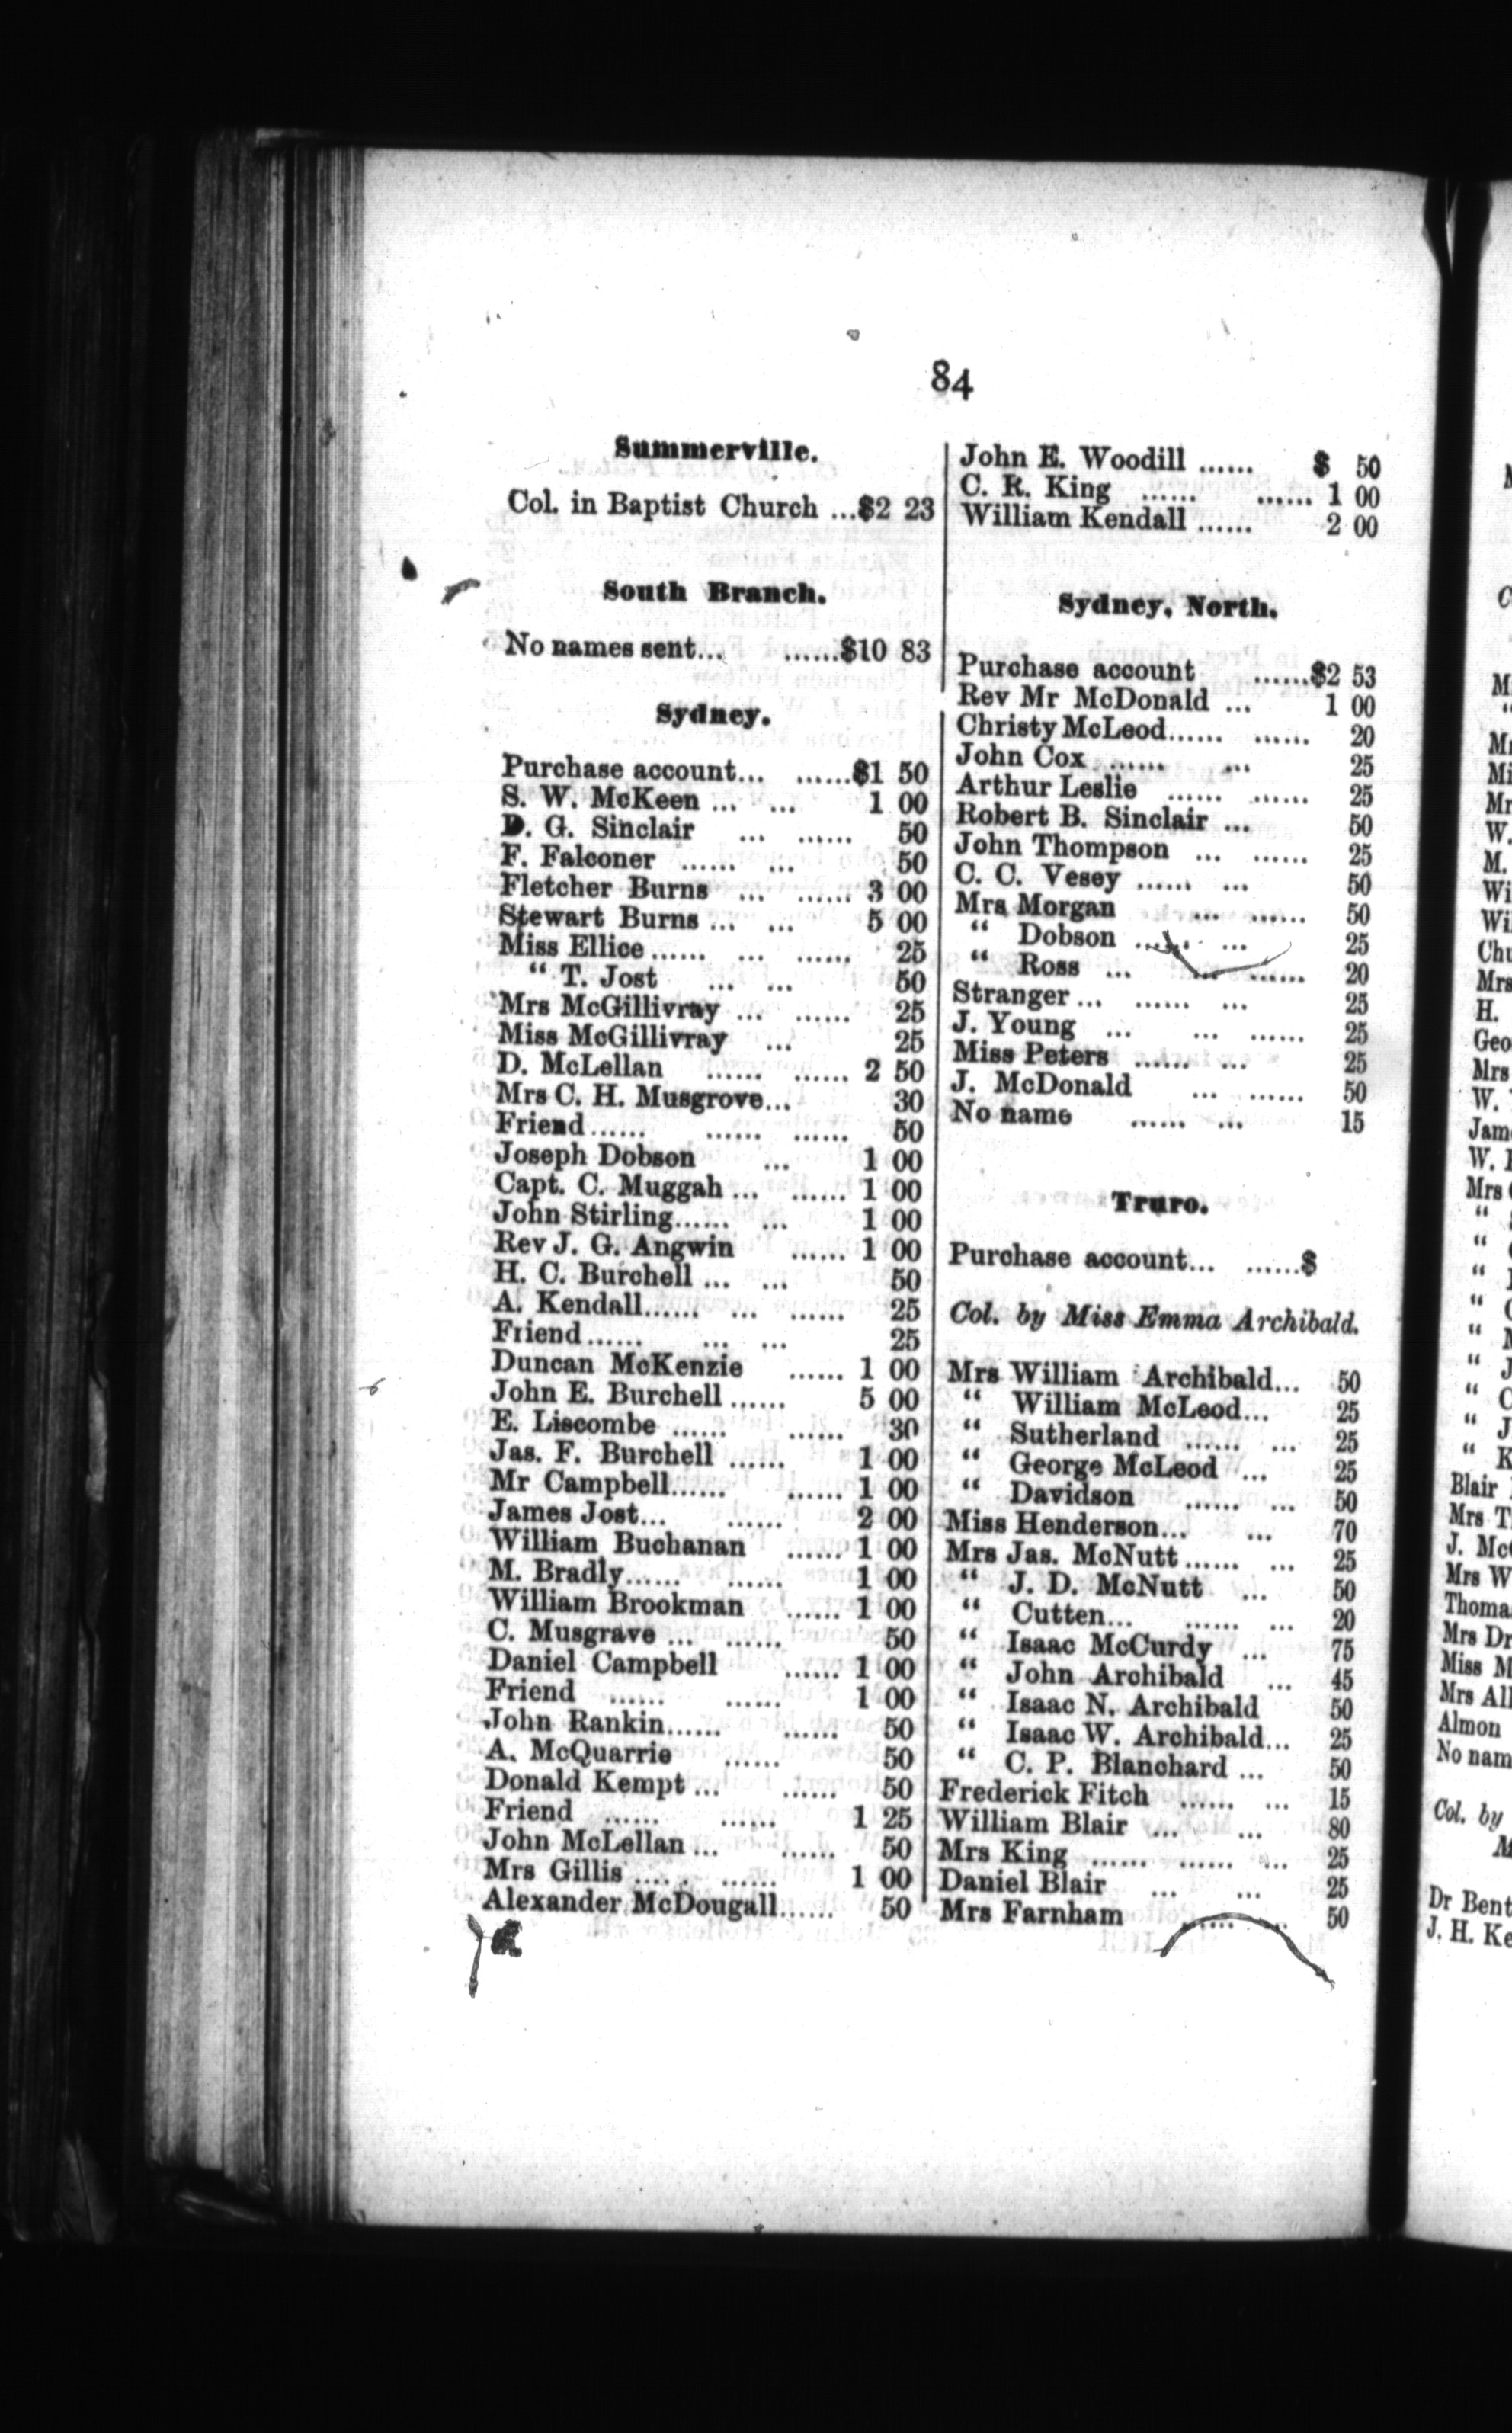 84
Summerville.
Col. in Baptist Church ...$2 23
South Branch.
No names sent... ......$10 83
Sydney.
Purchase account... ......$1 50
S. W. McKeen ... ... 1 00
D. G. Sinclair ... ...... 50
F. Falconer ...... ... 50
Fletcher Burns ... ...... 3 00
Stewart Burns ... ... 5 00
Miss Ellice ...... ... ...... 25
“ T. Jost ... ... 50
Mrs McGillivray ... ...... 25
Miss McGillivray ... 25
D. McLellan ...... ...... 2 50
Mrs C. H. Musgrove... 30
Friend ...... ...... ...... 50
Joseph Dobson ... 1 00
Capt. C. Muggah ... ...... 1 00
John Stirling...... ... 1 00
Rev J. G. Angwin ...... 1 00
H. C. Burchell ... ... 50
A. Kendall...... ... ...... 25
Friend ...... ... ... 25
Duncan McKenzie ...... 1 00
John E. Burchell ...... 5 00
E. Liscombe ...... ...... 30
Jas. F. Burchell ...... 1 00
Mr Campbell...... ...... 1 00
James Jost... ...... 2 00
William Buchanan ...... 1 00
M. Bradly...... ...... 1 00
William Brookman ...... 1 00
C. Musgrave ... ...... 50
Daniel Campbell ...... 1 00
Friend ...... ...... 1 00
John Rankin...... ...... 50
A. McQuarrie ...... 50
Donald Kempt ... ...... 50
Friend ...... ...... 1 25
John McLellan ... ...... 50
Mrs Gillis ..... ...... 1 00
Alexander McDougall...... 50
John E. Woodill ...... $ 50
C. R. King ...... ...... 1 00
William Kendall ...... 2 00
Sydney, North.
Purchase account ......$2 53
Rev Mr McDonald ... 1 00
Christy McLeod...... ...... 20
John Cox ...... ... 25
Arthur Leslie ...... ...... 25
Robert B. Sinclair ... 50
John Thompson ... ...... 25
C. C. Vesey ...... ... 50
Mrs Morgan ... ...... 50
“ Dobson ...... ... 25
“ Ross ... ...... 20
Stranger ... ...... ... 25
J. Young ... ... ...... 25
Miss Peters ...... ... 25
J. McDonald ... ...... 50
No name ...... ... 15
Truro.
Purchase account... ......$
Col. by Miss Emma Archibald.
Mrs William Archibald... 50
“ William McLeod... 25
“ Sutherland ...... ... 25
“ George McLeod ... 25
“ Davidson ...... ... 50
Miss Henderson... ... 70
Mrs Jas. McNutt ...... ... 25
“ J. D. McNutt ... 50
“ Cutten... ...... ... 20
“ Isaac McCurdy ... 75
“ John Archibald ... 45
“ Isaac N. Archibald 50
“ Isaac W. Archibald... 25
“ C. P. Blanchard ... 50
Frederick Fitch ...... ... 15
William Blair ... ... 80
Mrs King ...... ...... ... 25
Daniel Blair ... ... 25
Mrs Farnham ...... ... 50
W.
M.
Mrs
H.
Mrs
W.
W.
Mrs
“
“
“
“
“
“
“
“
“
Blair
Mrs
Mrs W
Mrs Dr
Miss M
Almon
Col. by
Dr Bent
J. H. Ke